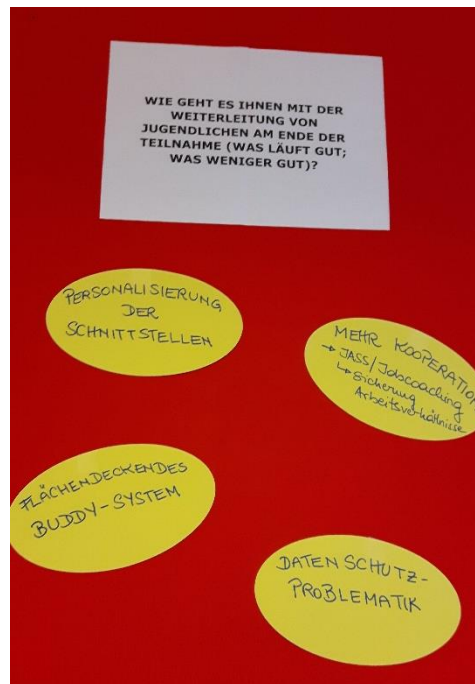 WIE GEHT ES IHNEN MIT DER
WEITERLEITUNG VON
JUGENDLICHEN AM ENDE DER
TEILNAHME (WAS LÄUFT GUT;
WAS WENIGER GUT)?
PERSONALISIERUNG
DER
SCHNITTSTELLEN
MEHR KOOPERATION
→ JASS/Jobcoaching
↳ Sicherung
Arbeitsverhältnisse
FLÄCHENDECKENDES
BUDDY-SYSTEM
DATENSCHUTZ-
PROBLEMATIK